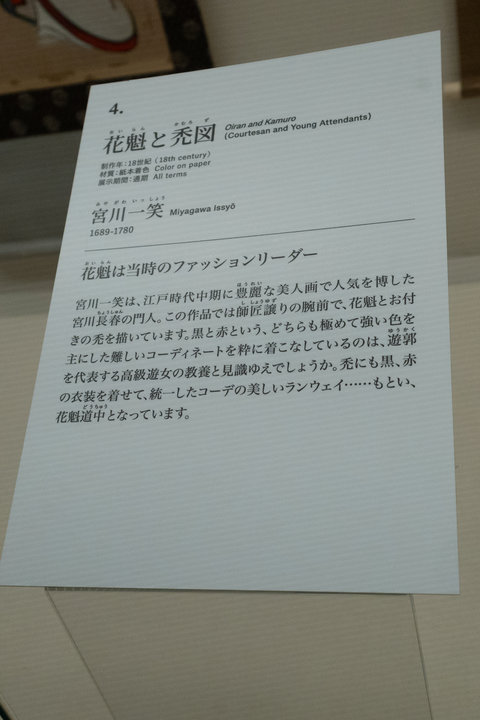 4.
花魁と禿図 Oiran and Kamuro
おいらん かむろ ず (Courtesan and Young Attendants)
制作年:18世紀 (18th century)
材質:紙本着色 Color on paper
展示期間:通期 All terms
みやがわ いっしょう
宮川一笑 Miyagawa Issyō
1689-1780
おいらん
花魁は当時のファッションリーダー
ほうれい
宮川一笑は、江戸時代中期に豊麗な美人画で人気を博した
ちょうしゅん ししょうゆず
宮川長春の門人。この作品では師匠譲りの腕前で、花魁とお付
きの禿を描いています。黒と赤という、どちらも極めて強い色を
ゆうかく
主にした難しいコーディネートを粋に着こなしているのは、遊郭
を代表する高級遊女の教養と見識ゆえでしょうか。禿にも黒、赤
の衣装を着せて、統一したコーデの美しいランウェイ……もとい、
どうちゅう
花魁道中となっています。